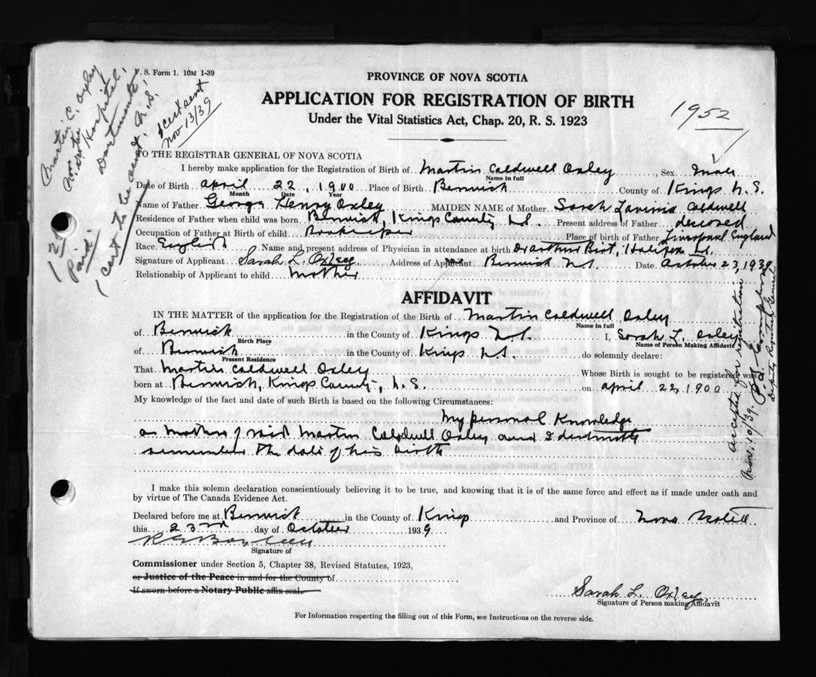 V. S. Form 1. 10M 1-39
Martin C. Oxley
Hospital,
Dartmouth
(cert to be sent. N.S.
Paid.
1 cert sent
Nov 13/39
1952
PROVINCE OF NOVA SCOTIA
APPLICATION FOR REGISTRATION OF BIRTH
Under the Vital Statistics Act, Chap. 20, R. S. 1923
TO THE REGISTRAR GENERAL OF NOVA SCOTIA
I hereby make application for the Registration of Birth of Martin Caldwell Oxley, Sex Male
Name in full
Date of Birth April 22, 1900 Place of Birth Berwick County of Kings N.S.
Month Date Year
Name of Father George Henry Oxley MAIDEN NAME of Mother Sarah Lavinia Caldwell
Residence of Father when child was born Berwick, Kings County N.S. Present address of Father deceased
Occupation of Father at Birth of child Bookeeper Place of birth of Father Liverpool England
Race English Name and present address of Physician in attendance at birth Dr Arthur Birt, Halifax N.S.
Signature of Applicant Sarah L. Oxley Address of Applicant Berwick N.S. Date October 23, 1939
Relationship of Applicant to child mother
AFFIDAVIT
IN THE MATTER of the application for the Registration of the Birth of Martin Caldwell Oxley
Name in full
of Berwick in the County of Kings N.S. I, Sarah L. Oxley
Birth Place Name of Person Making Affidavit
of Berwick in the County of Kings N.S. do solemnly declare:
Present Residence
That Martin Caldwell Oxley Whose Birth is sought to be registered was
born at Berwick, Kings County, N.S. on April 22, 1900
My knowledge of the fact and date of Birth is based on the following Circumstances:
My personal Knowledge
as mother of said Martin Caldwell Oxley and I distinctly
remember the date of his birth
accepted for registration
Nov. 10/39.
Deputy Registrar General
I make this solemn declaration conscientiously believing it to be true, and knowing that it is of the same force and effect as if made under oath and
by virtue of The Canada Evidence Act.
Declared before me at Berwick in the County of Kings and Province of Nova Scotia
this 23rd day of October 1939
Signature of
Commissioner under Section 5, Chapter 38, Revised Statutes, 1923,
or Justice of the Peace in and for the County of
If sworn before a Notary Public affix seal.
Sarah L. Oxley
Signature of Person making Affidavit
For Information respecting the filling out of this Form, see Instructions on the reverse side.